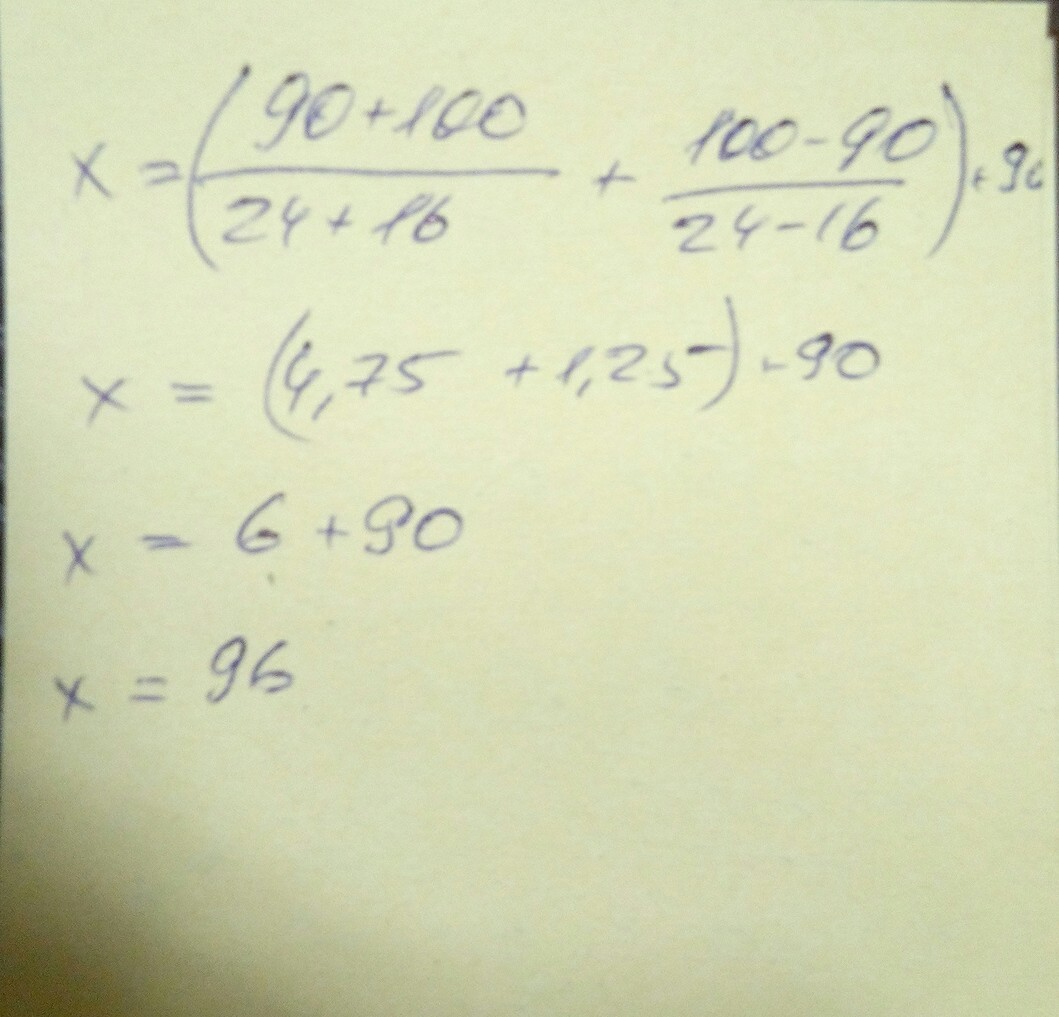 x = (90+100/24+16 + 100-90/24-16) · 90
x = (4,75 + 1,25) · 90
x = 6 + 90
x = 96